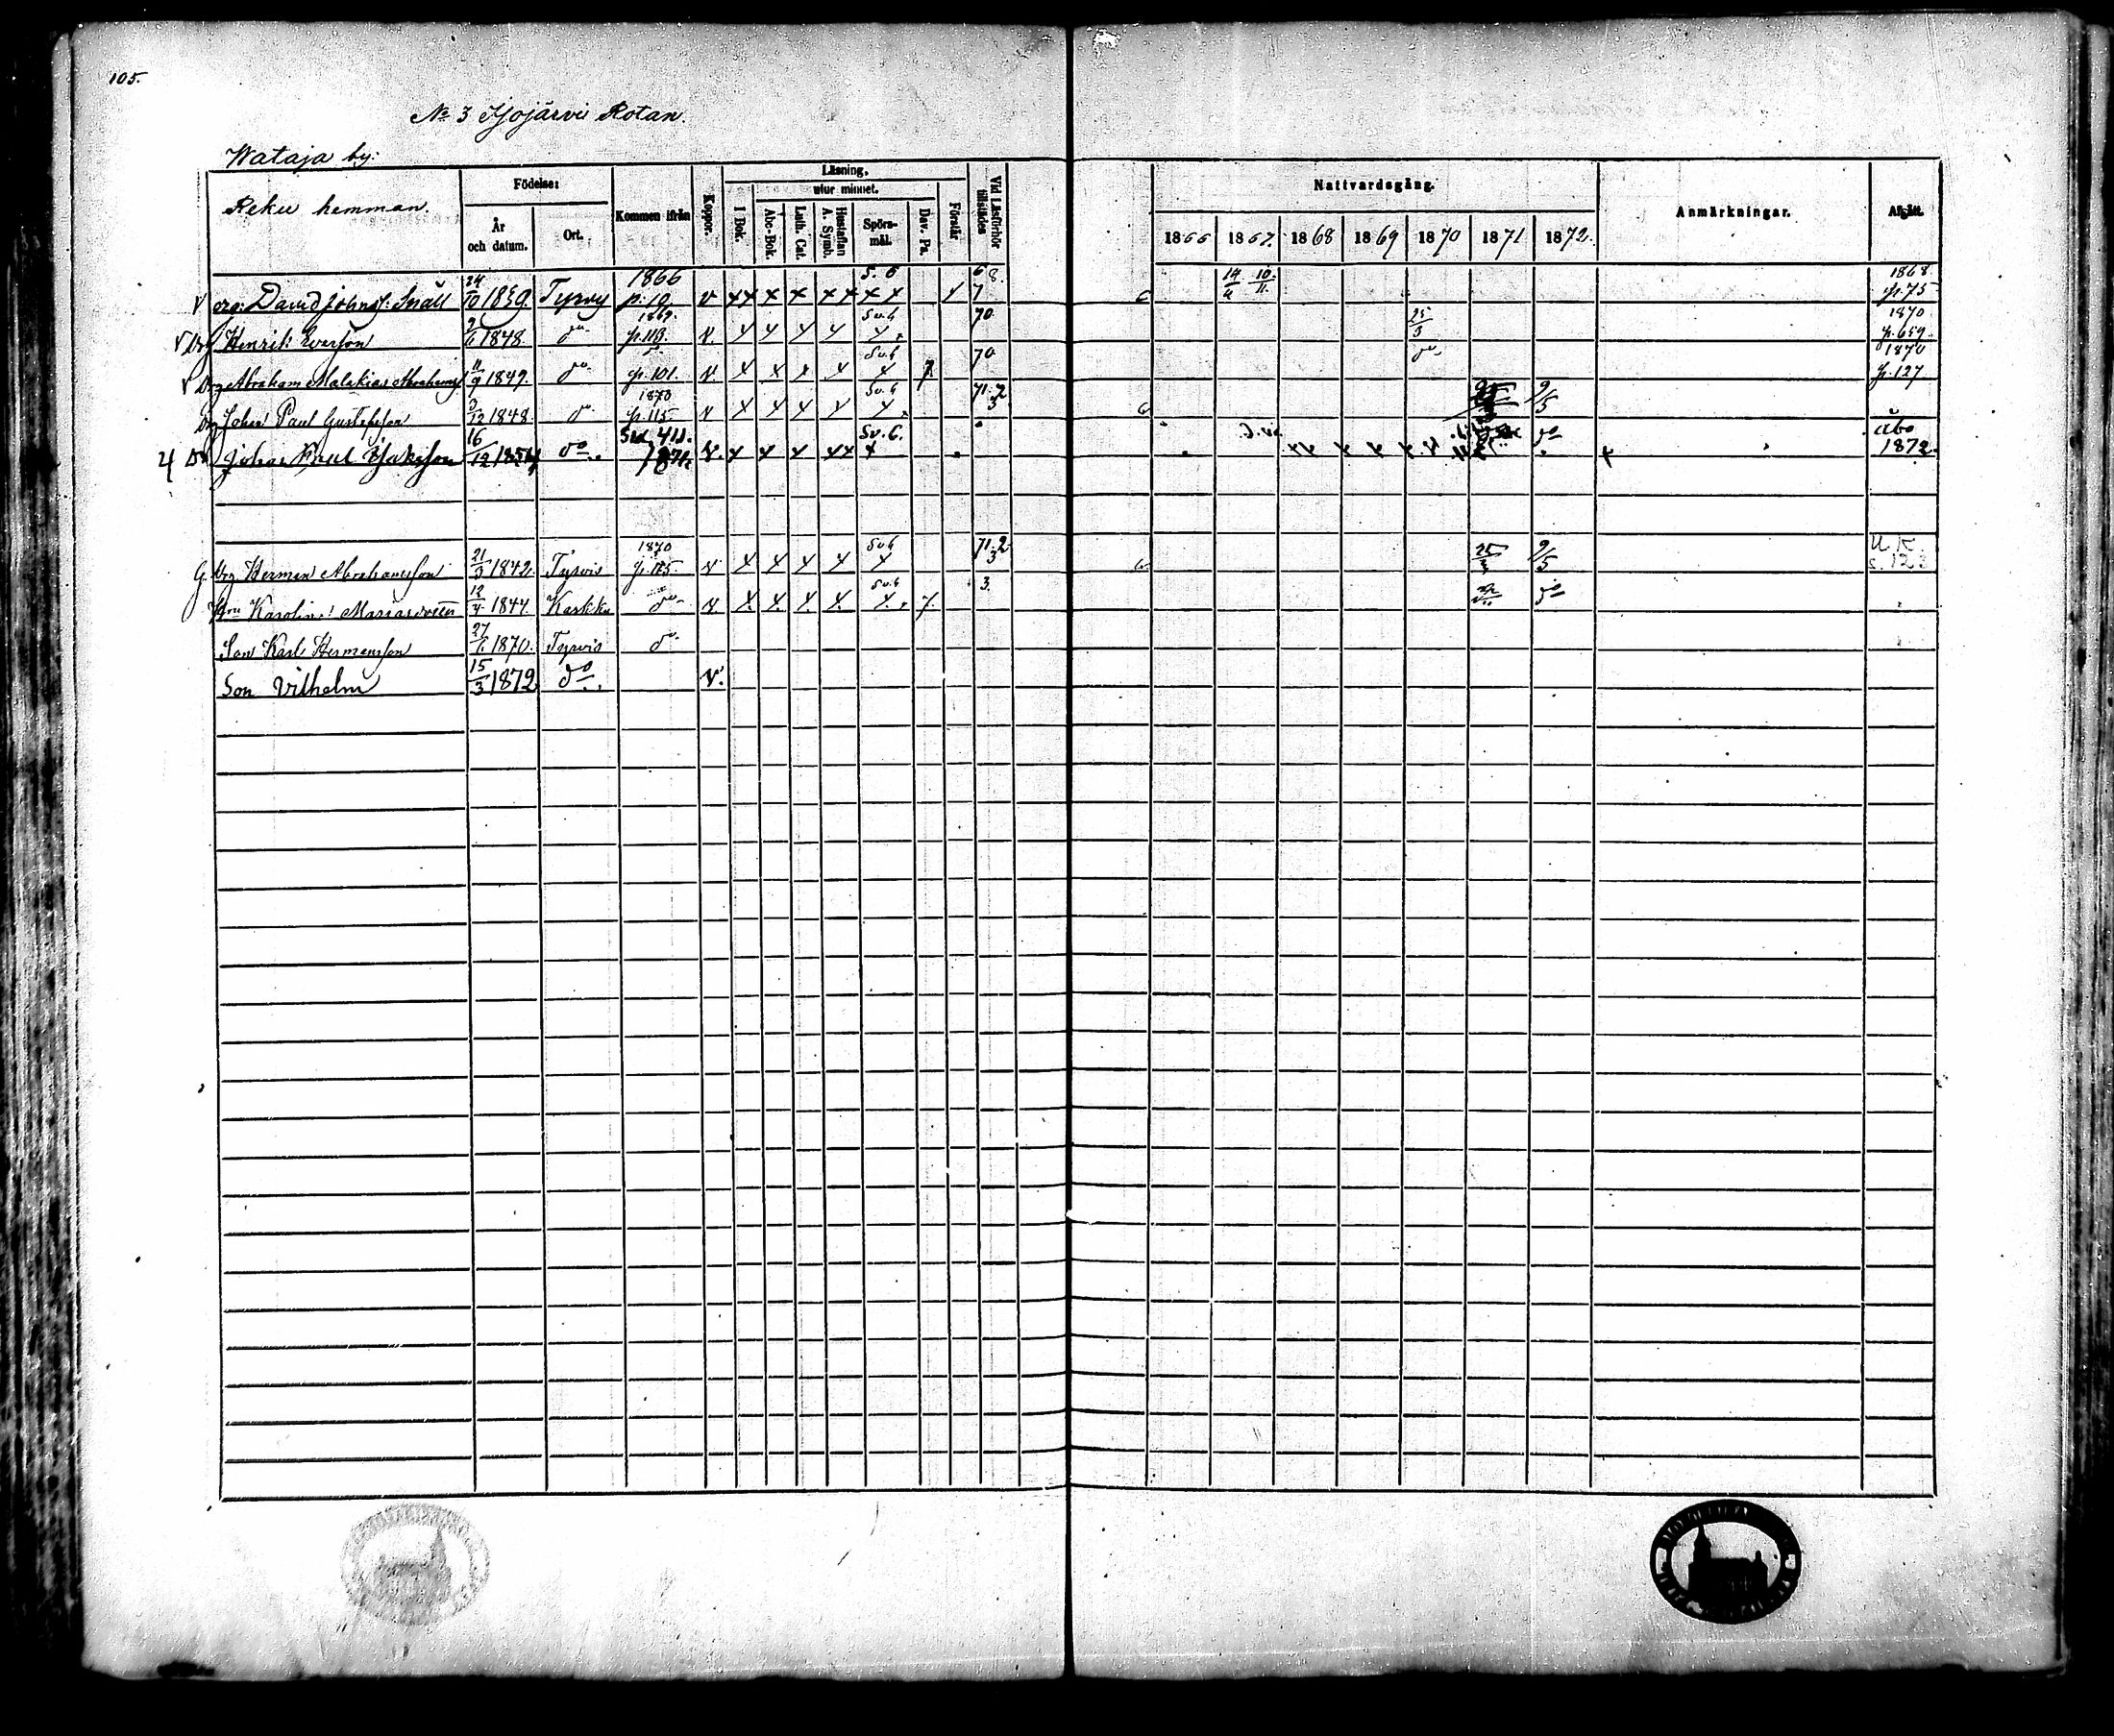 105.
No 3 Kjojärvi Rotan.
Wataja by:
Reku hemman.
Födelse:
År och datum.
Ort.
Kommen ifrån
Koppor.
Läsning,
utur minnet.
I Bok.
Abc-Bok.
Luth. Cat.
Hustaflan A. Symb.
Spörsmål.
Dav. Ps.
Förstår
Vid Läsförhör tillstädes
Nattvardsgång.
1866 1867. 1868 1869 1870 1871 1872.
Anmärkningar.
Afgått.
v drg: David Johnsf: Snäll 24/10 1859. Tyrvy 1866 p. 10. v S. 6 68 7 14/4 10/11. 1868. p. 75
v Drg Henrik Everson 9/6 1848. do 1869. p. 110. v. Sv. 6 70 25/3 1870 p. 659.
v Drg Abraham Malakias Abrahamsf 11/9 1849. do p. 101. v. Sv. 6 70 do 1870 p. 127
Drg Johan Paul Gustafsson 9/12 1848. do 1870 p. 115 v Sv. 6 71.2 3 9/5
4 Dr Johan Isaksson 16/12 do. Sid 411. 1871. v. Sv. 6. do Åbo 1872.
G. Drg Herman Abrahamsson 21/3 1842. Tyrvis 1870 p. 125. v Sv. 6 71.2 3 25/3 9/5
Hu Karolina Mariasdotter 12/4 1847. Karkku do v. Sv. 6 3. do
Son Karl Hermansson 27/6 1870. Tyrvis do
Son Vilhelm 15/3 1872 do. v.